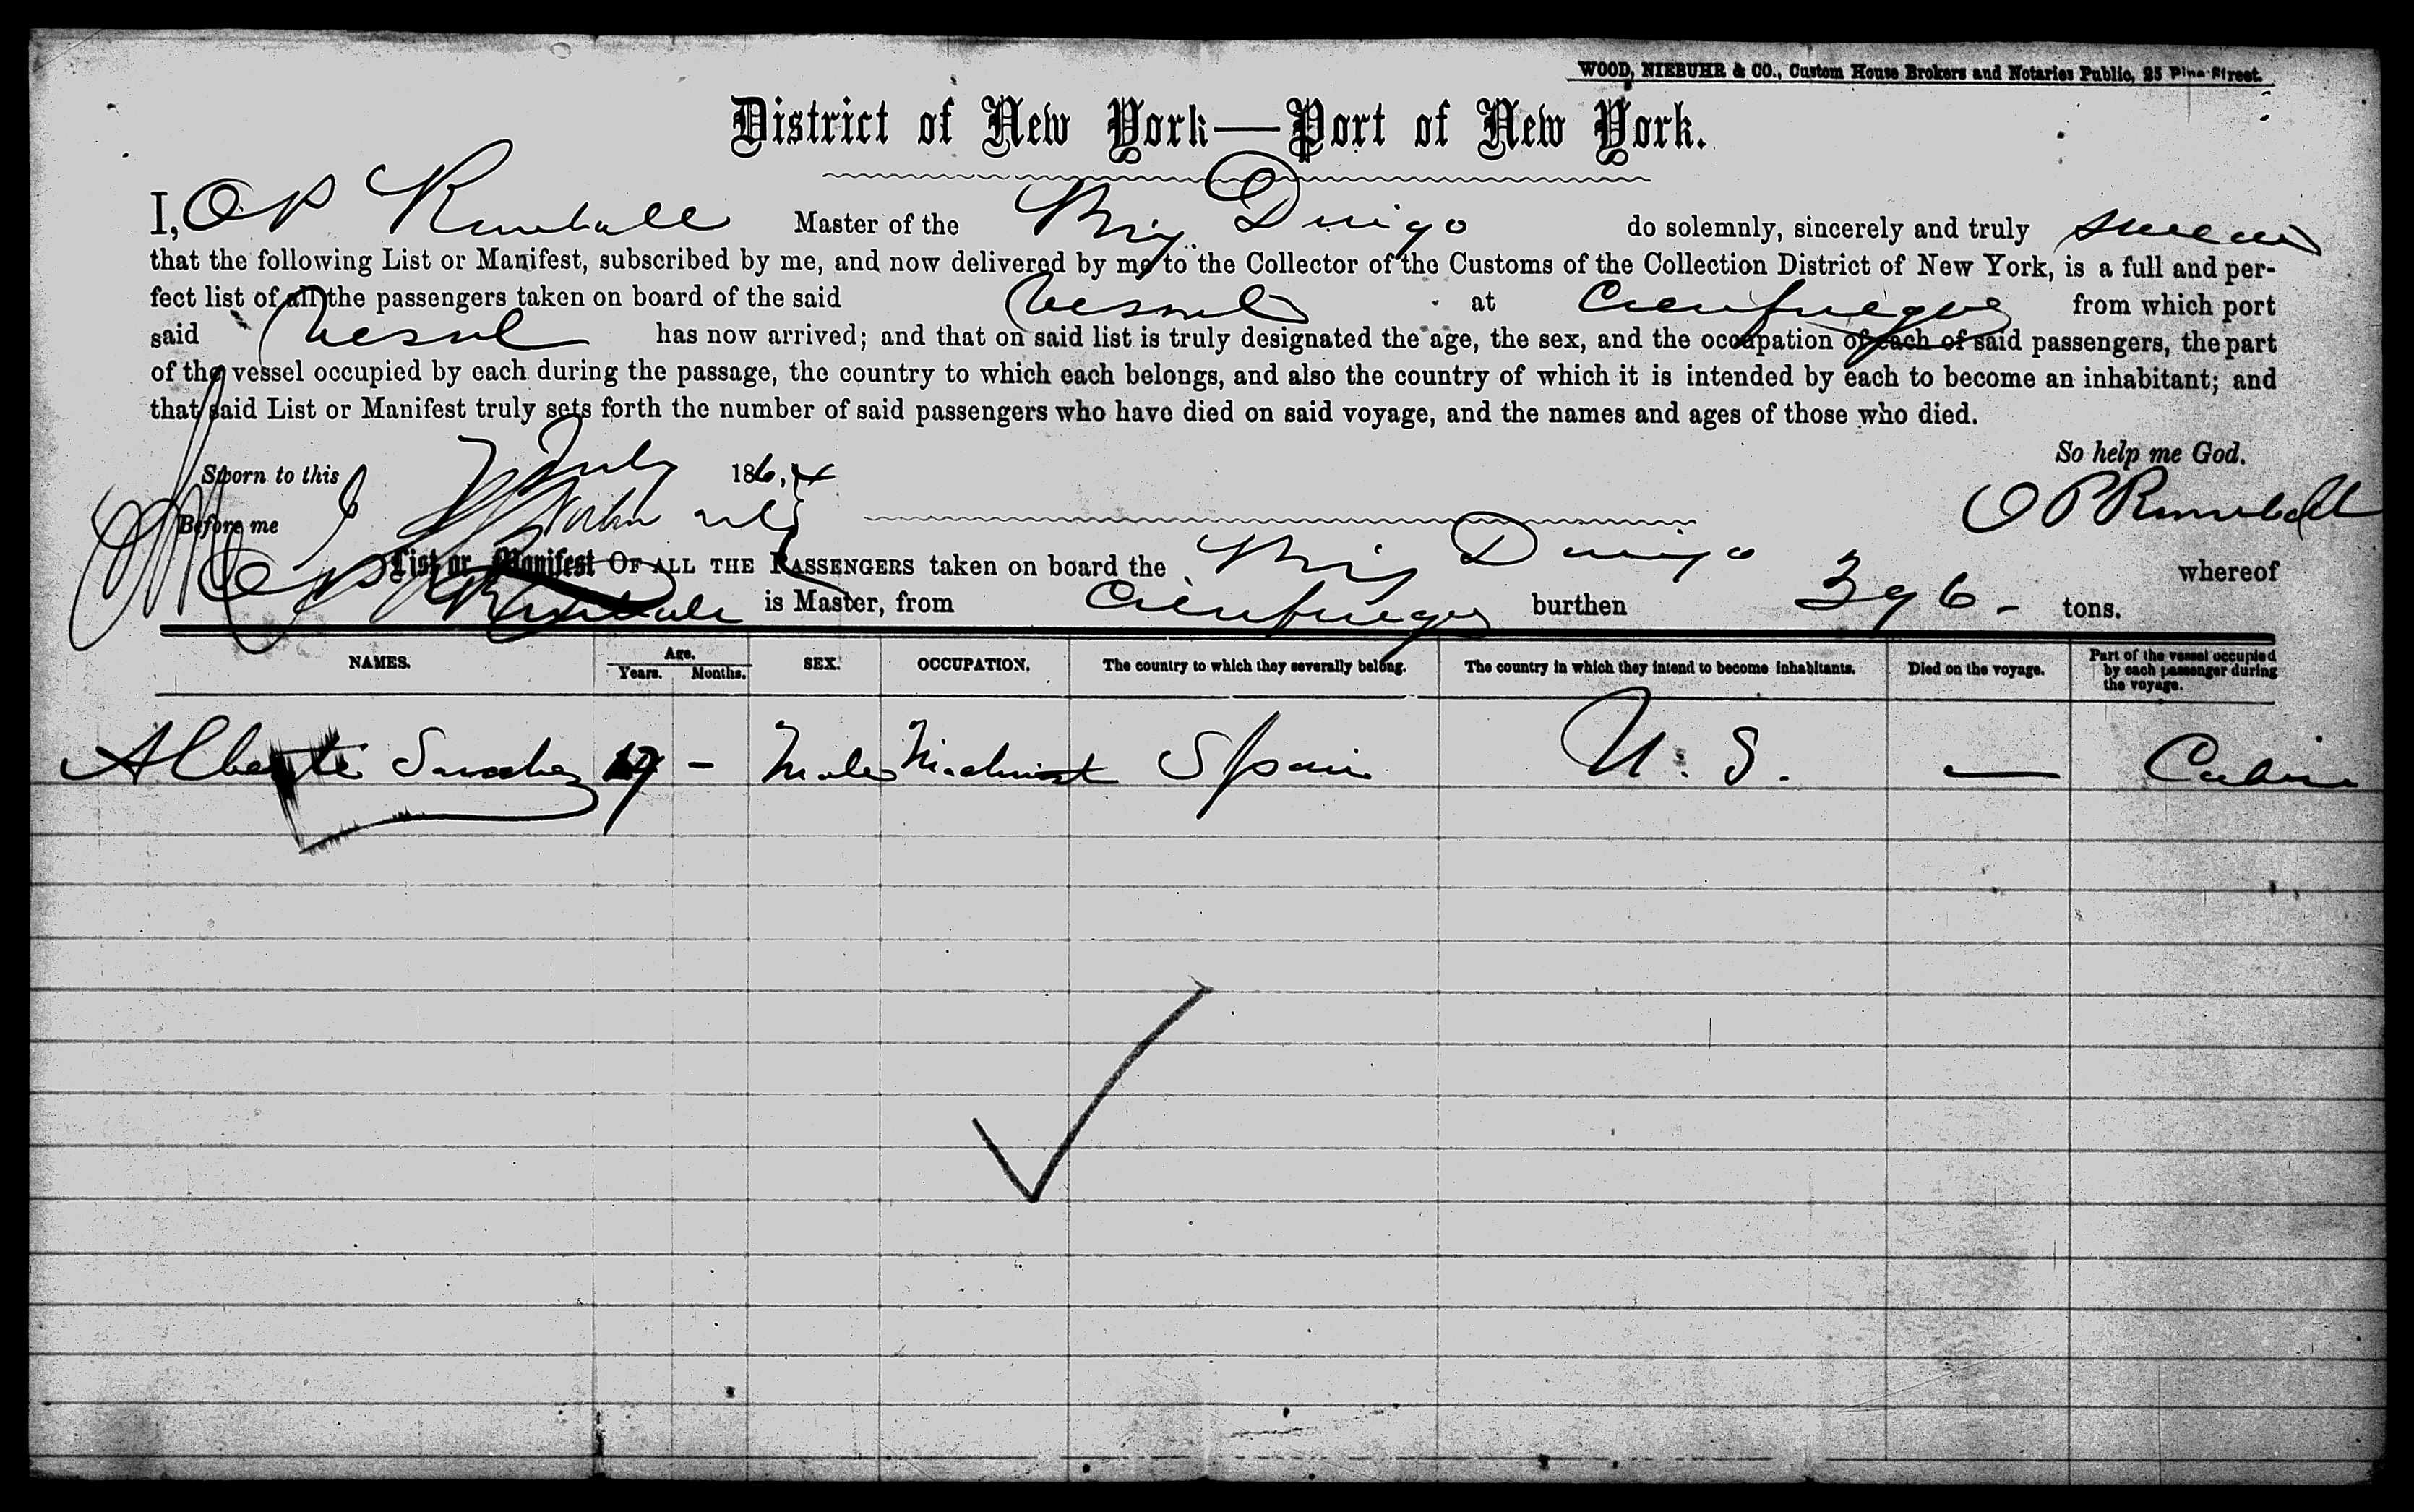 WOOD, NIEBUHR & CO., Custom House Brokers and Notaries Public, 25 Pine Street.
District of New York—Port of New York.
I, O P Rumball Master of the Brig Dirigo do solemnly, sincerely and truly swear
that the following List or Manifest, subscribed by me, and now delivered by me to the Collector of the Customs of the Collection District of New York, is a full and per-
fect list of all the passengers taken on board of the said Vessel at Cienfuegos from which port
said Vessel has now arrived; and that on said list is truly designated the age, the sex, and the occupation of each of said passengers, the part
of the vessel occupied by each during the passage, the country to which each belongs, and also the country of which it is intended by each to become an inhabitant; and
that said List or Manifest truly sets forth the number of said passengers who have died on said voyage, and the names and ages of those who died.
So help me God.
Sworn to this July 186,4
O P Rumball
Before me
List or Manifest OF ALL THE PASSENGERS taken on board the Brig Dirigo whereof
O P Rumball is Master, from Cienfuegos burthen 396 - tons.
NAMES. Age. Years. Months. SEX. OCCUPATION. The country to which they severally belong. The country in which they intend to become inhabitants. Died on the voyage. Part of the vessel occupied by each passenger during the voyage.
Alberto Sanchez - Male Machinist Spain U. S. — Cabin